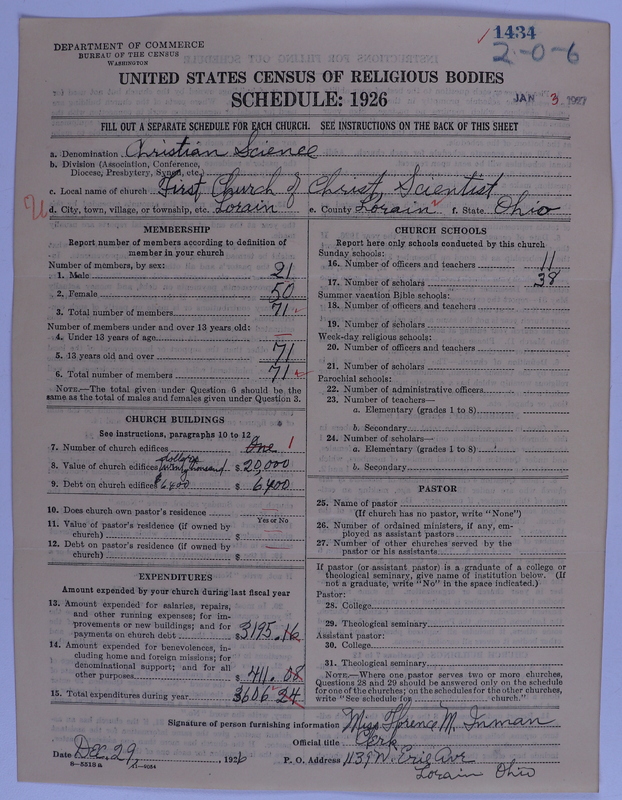 1434
2-0-6
DEPARTMENT OF COMMERCE
BUREAU OF THE CENSUS
WASHINGTON
UNITED STATES CENSUS OF RELIGIOUS BODIES
SCHEDULE: 1926
JAN 3 1927
FILL OUT A SEPARATE SCHEDULE FOR EACH CHURCH. SEE INSTRUCTIONS ON THE BACK OF THIS SHEET
a. Denomination Christian Science
b. Division (Association, Conference,
Diocese, Presbytery, Synod, etc.)
c. Local name of church First Church of Christ, Scientist
U d. City, town, village, or township, etc. Lorain e. County Lorain f. State Ohio
MEMBERSHIP
Report number of members according to definition of
member in your church
Number of members, by sex:
1. Male 21
2. Female 50
3. Total number of members 71
Number of members under and over 13 years old:
4. Under 13 years of age —
5. 13 years old and over 71
6. Total number of members 71
NOTE.—The total given under Question 6 should be the
same as the total of males and females given under Question 3.
CHURCH BUILDINGS
See instructions, paragraphs 10 to 12
7. Number of church edifices One 1
dollars
8. Value of church edifices twenty thousand $ 20,000
9. Debt on church edifices $6400 $ 6400
10. Does church own pastor's residence —
Yes or No
11. Value of pastor's residence (if owned by
church) $ —
12. Debt on pastor's residence (if owned by
church) $ —
EXPENDITURES
Amount expended by your church during last fiscal year
13. Amount expended for salaries, repairs,
and other running expenses; for im-
provements or new buildings; and for
payments on church debt $ 3195.16
14. Amount expended for benevolences, in-
cluding home and foreign missions; for
denominational support; and for all
other purposes $ 411.08
15. Total expenditures during year 3606 24
CHURCH SCHOOLS
Report here only schools conducted by this church
Sunday schools:
16. Number of officers and teachers 11
17. Number of scholars 38
Summer vacation Bible schools:
18. Number of officers and teachers
19. Number of scholars
Week-day religious schools:
20. Number of officers and teachers
21. Number of scholars
Parochial schools:
22. Number of administrative officers
23. Number of teachers—
a. Elementary (grades 1 to 8)
b. Secondary
24. Number of scholars—
a. Elementary (grades 1 to 8)
b. Secondary
PASTOR
25. Name of pastor
(If church has no pastor, write "None")
26. Number of ordained ministers, if any, em-
ployed as assistant pastors
27. Number of other churches served by the
pastor or his assistants
If pastor (or assistant pastor) is a graduate of a college or
theological seminary, give name of institution below. (If
not a graduate, write "No" in the space indicated.)
Pastor:
28. College
29. Theological seminary
Assistant pastor:
30. College
31. Theological seminary
NOTE.—Where one pastor serves two or more churches,
Questions 28 and 29 should be answered only on the schedule
for one of the churches; on the schedules for the other churches,
write "See schedule for church."
Signature of person furnishing information Miss Florence M. Inman
Official title Clerk
Date Dec. 29, 1926 P. O. Address 1139 W. Erie Ave
8-5518 a 11-9054 Lorain Ohio